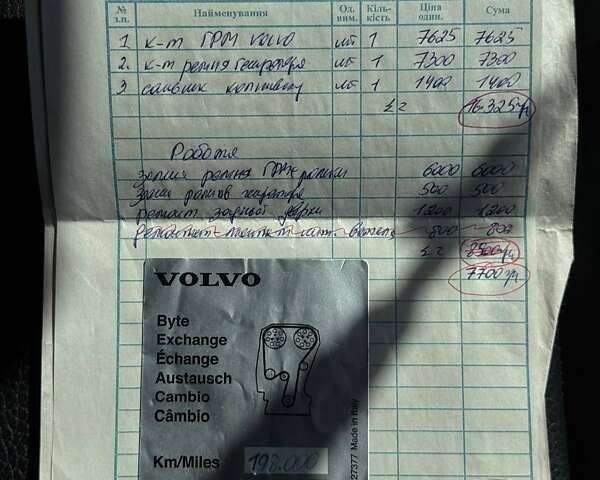 № з.п. Найменування Од. вим. Кіль-кість Ціна один. Сума
1 к-т ГРМ Volvo шт 1 7625 7625
2. к-т ремня генератора шт 1 7300 7300
3 сальник колінвалу шт 1 1400 1400
16.325
Робота
заміна ремня ГРМ + ролики 6000 6000
Заміна ременя генератора 500 500
Ремонт задньої дверки 1200 1200
800 800
8500
7700
VOLVO
Byte
Exchange
Échange
Austausch
Cambio
Câmbio
Km/Miles 198.000
27377 Made in Italy